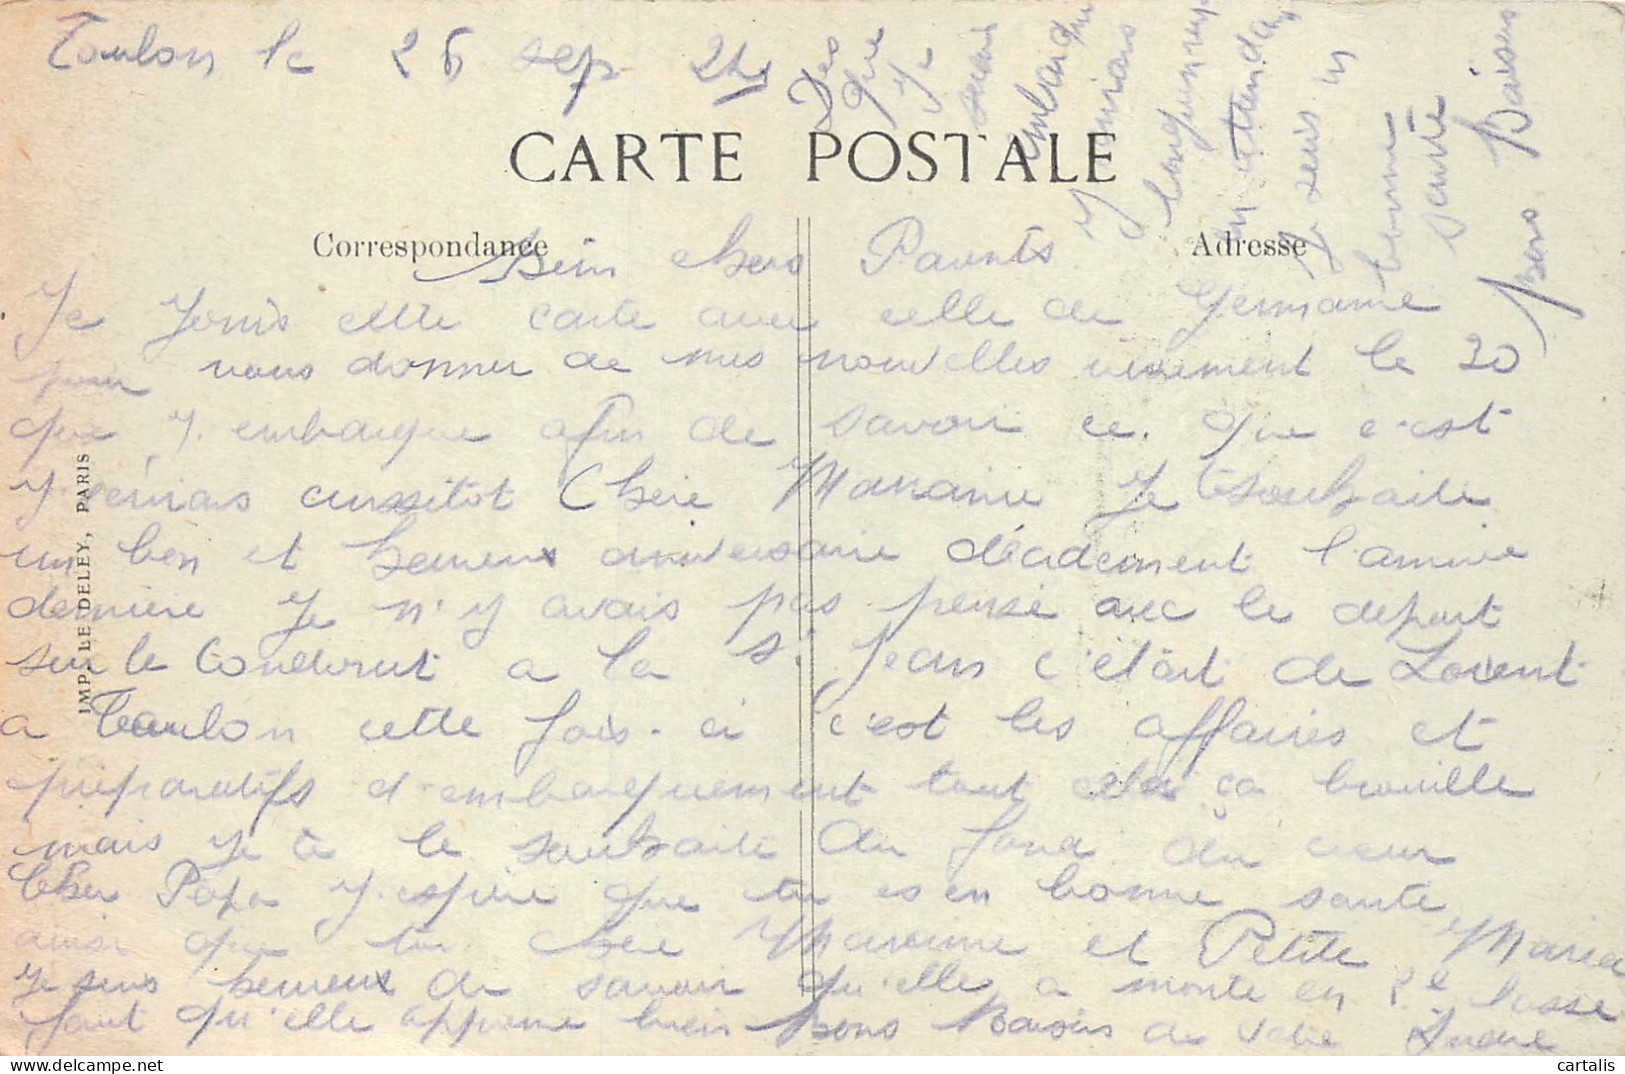 Toulon le 26 sep 24
Des
que
je
serais
embarqué
J'
en attendant
Je suis en
bonne
santé
Bons Baisers
CARTE POSTALE
Correspondance
Adresse
Bien chers Parents
Je Joins cette carte avec celle de Germaine
pour vous donner de mes nouvelles vivement le 30
que j. embarque afin de savoir ce. que c'est
aussitot Chère Maraine Je te souhaite
un bon et heureux anniversaire décidement l'année
derniere Je n'y avais pas pensé avec le depart
sur le Condorcet a la St Jean c'était de Lorient
a Toulon cette fois-ci c'est les affaires et
préparatifs d'embarquement tout cela ça brouille
mais je te le souhaite du fond du cœur
Cher Papa J.espere que tu es en bonne sante
ainsi que toi chere Maraine et Petite Maria
je suis heureux de savoir qu'elle a monté en 2e classe
faut qu'elle apprenne bien Bons Baisers de votre André
IMP. LE DELEY, PARIS